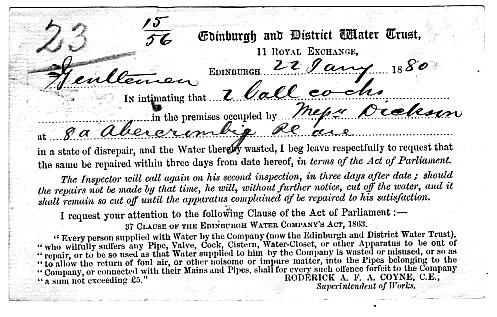 23
15/56
Edinburgh and District Water Trust,
11 ROYAL EXCHANGE,
Gentlemen
EDINBURGH 22 Jany 1880
IN intimating that 2 ball cocks
in the premises occupied by Messrs Dickson
at 8a Abercromby Place
in a state of disrepair, and the Water thereby wasted, I beg leave respectfully to request that
the same be repaired within three days from date hereof, in terms of the Act of Parliament.
The Inspector will call again on his second inspection, in three days after date; should
the repairs not be made by that time, he will, without further notice, cut off the water, and it
shall remain so cut off until the apparatus complained of be repaired to his satisfaction.
I request your attention to the following Clause of the Act of Parliament:—
37 CLAUSE OF THE EDINBURGH WATER COMPANY'S ACT, 1863.
"Every person supplied with Water by the Company (now the Edinburgh and District Water Trust),
"who wilfully suffers any Pipe, Valve, Cock, Cistern, Water-Closet, or other Apparatus to be out of
"repair, or to be so used as that Water supplied to him by the Company is wasted or misused, or so as
"to allow the return of foul air, or other noisome or impure matter, into the Pipes belonging to the
"Company, or connected with their Mains and Pipes, shall for every such offence forfeit to the Company
"a sum not exceeding £5."
RODERICK A. F. A. COYNE, C.E.,
Superintendent of Works.